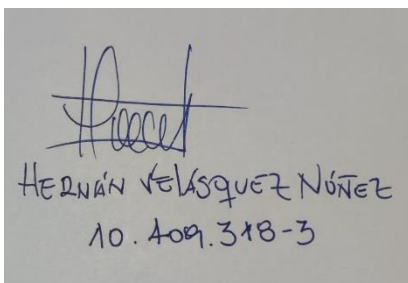 HERNÁN VELÁSQUEZ NÚÑEZ
10.409.378-3